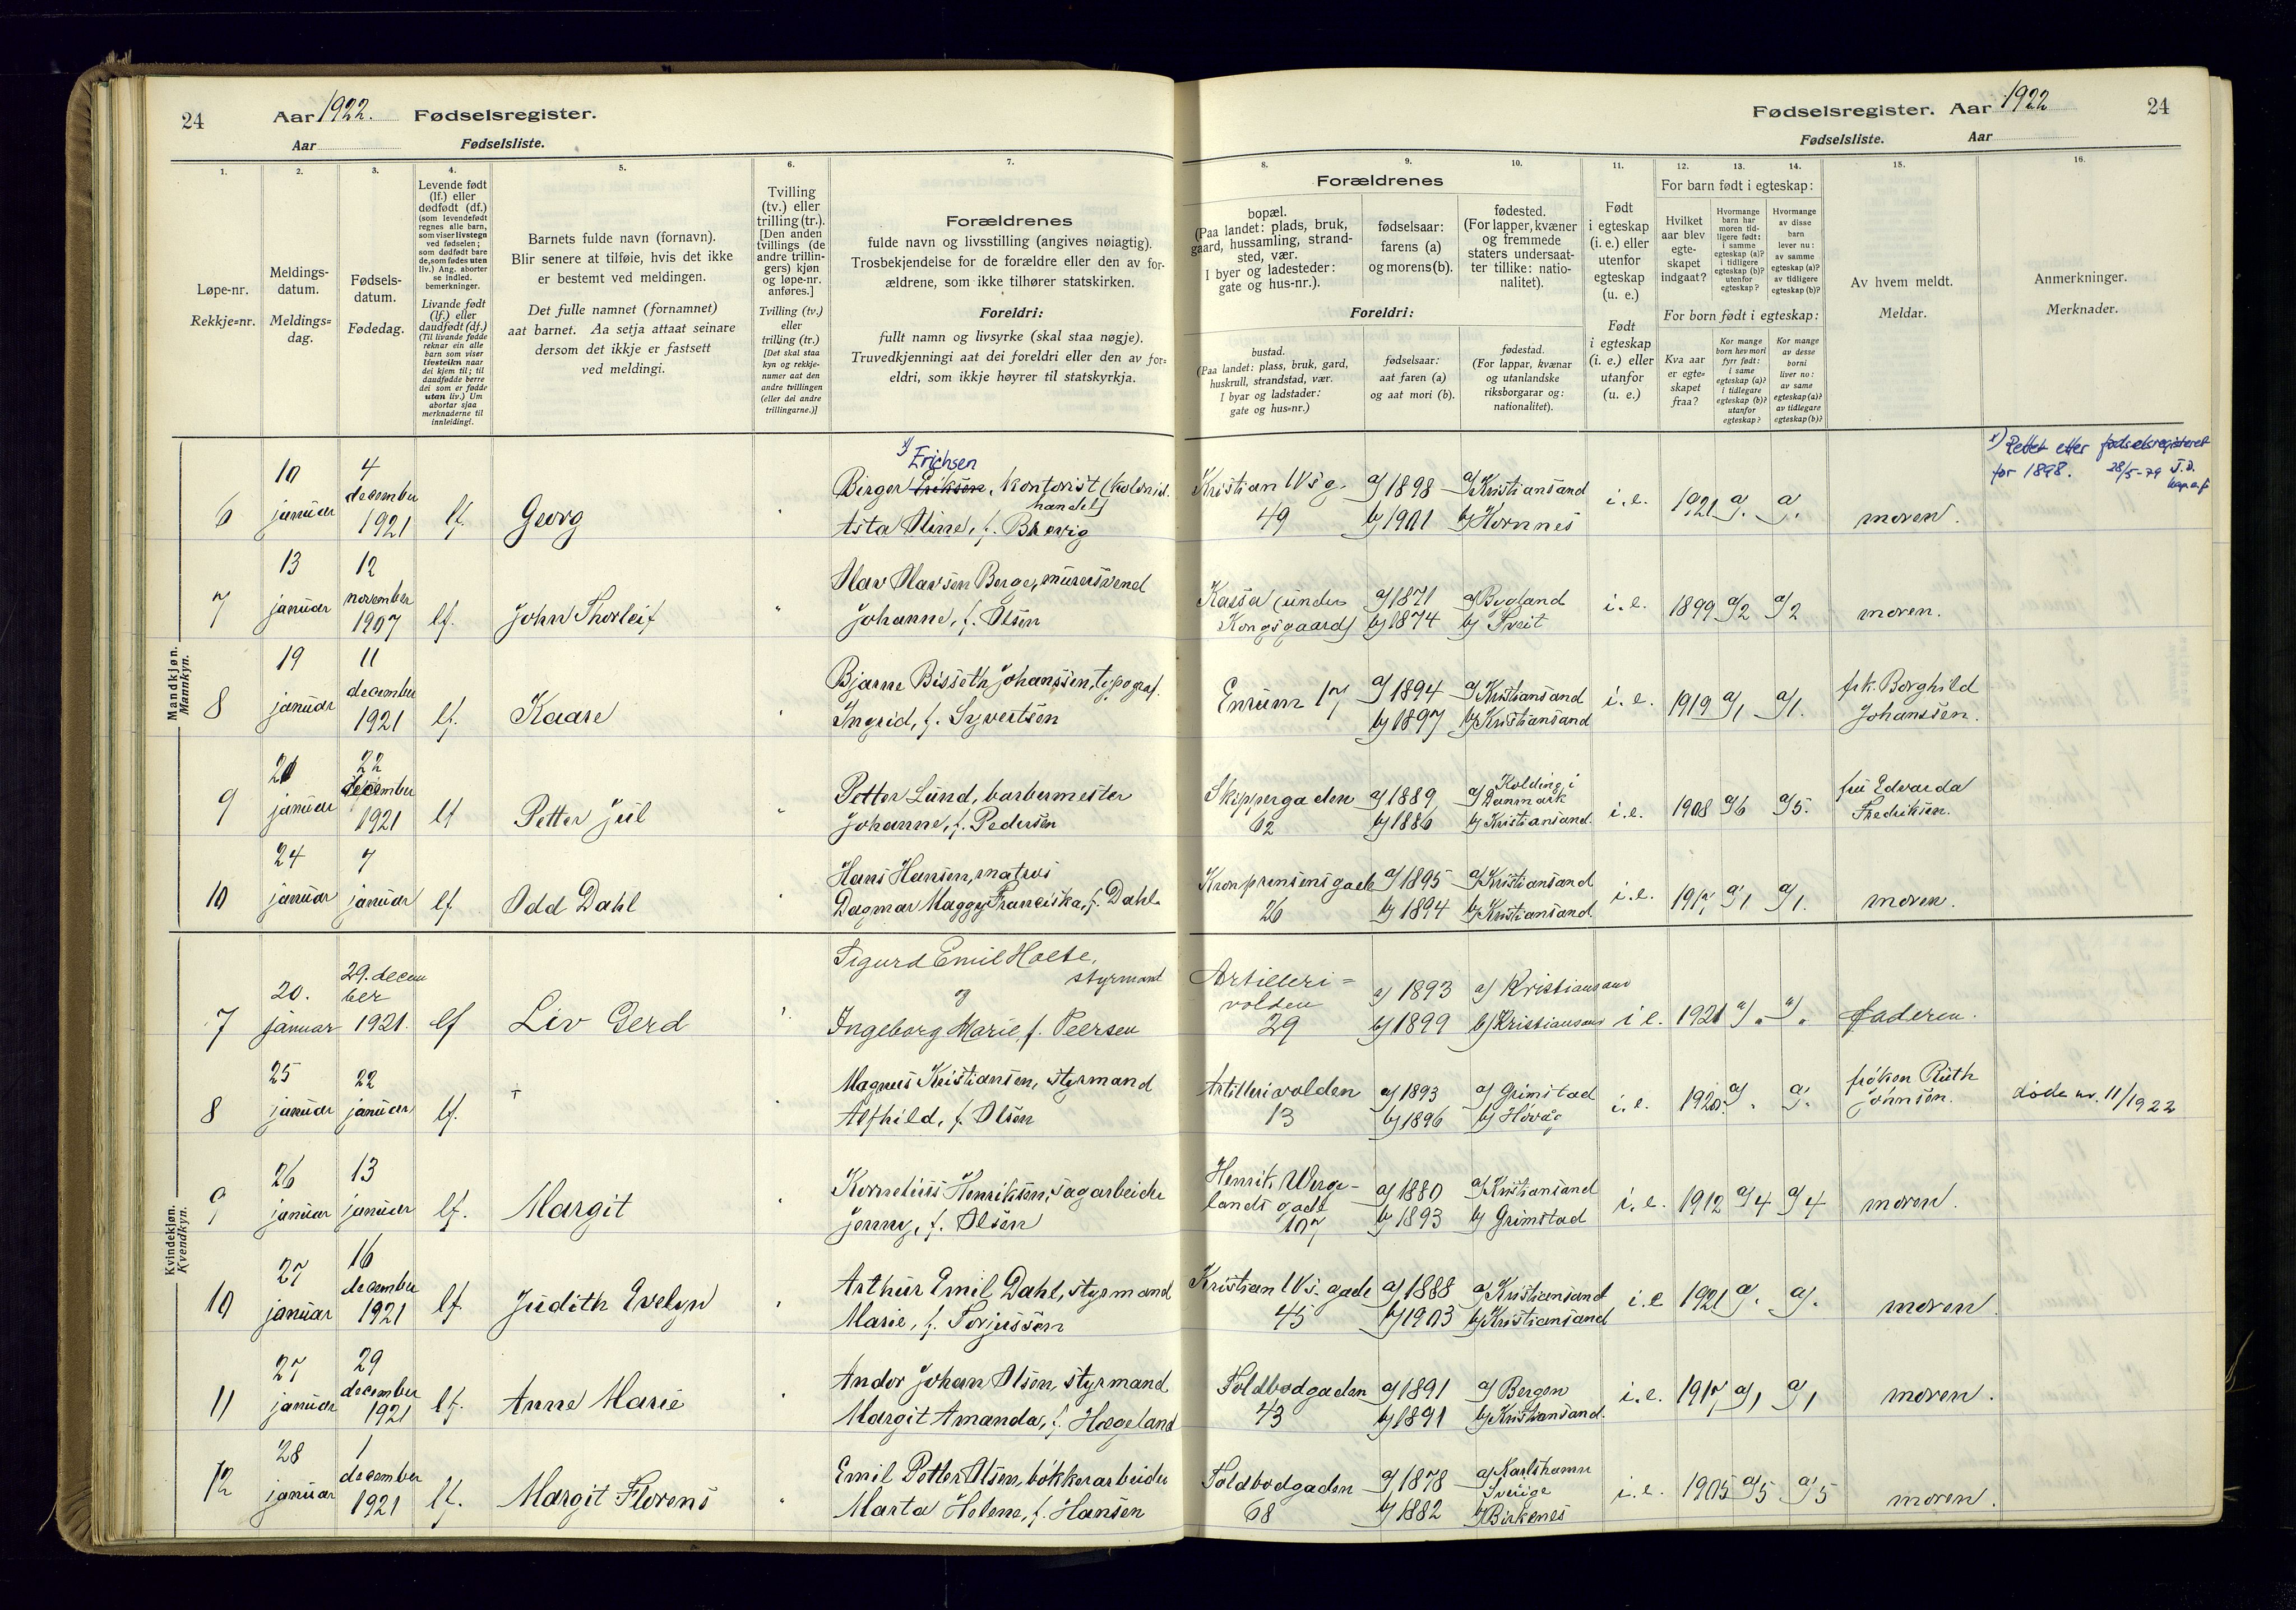 24
Aar 1922. Fødselsregister.
Aar Fødselsliste.
1. 2. 3. 4. 5. 6. 7.
Løpe-nr.
Rekkje=nr.
Meldings-
datum.
Meldings=
dag.
Fødsels-
datum.
Fødedag.
Levende født
(lf.) eller
dødfødt (df.)
(som levendefødt
regnes alle barn,
som viser livstegn
ved fødselen;
som dødfødt bare
de, som fødes uten
liv.) Ang. aborter
se indled.
bemerkninger.
Livande født
(lf.) eller
daudfødt (df.)
(Til livande fødde
reknar ein alle
barn som viser
livsteikn naar
dei kjem til; til
daudfødde berre
dei som er fødde
utan liv.) Um
abortar sjaa
merknaderne til
innleidingi.
Barnets fulde navn (fornavn).
Blir senere at tilføie, hvis det ikke
er bestemt ved meldingen.
Det fulle namnet (fornamnet)
aat barnet. Aa setja attaat seinare
dersom det ikkje er fastsett
ved meldingi.
Tvilling
(tv.) eller
trilling (tr.).
[Den anden
tvillings (de
andre trillin-
gers) kjøn
og løpe-nr.
anføres.]
Tvilling (tv.)
eller
trilling (tr.)
[Det skal staa
kyn og rekkje-
numer aat den
andre tvillingen
(eller dei andre
trillingarne.)]
Forældrenes
fulde navn og livsstilling (angives nøiagtig).
Trosbekjendelse for de forældre eller den av for-
ældrene, som ikke tilhører statskirken.
Foreldri:
fullt namn og livsyrke (skal staa nøgje).
Truvedkjenningi aat dei foreldri eller den av for=
eldri, som ikkje høyrer til statskyrkja.
Mandkjøn.
Mannkyn.
6 10 januar 4 december 1921 lf. Georg
x) Erichsen
Birger Eriksen, kontorist (kolonial-
handel)
Asta Oline, f. Brevig
7 13 januar 12 november 1907 lf. John Thorleif
Olav Olavsen Berge, murersvend
Johanne, f. Olsen
8 19 januar 11 december 1921 lf. Kaare
Bjarne Bisseth Johanssen, typograf.
Ingrid, f. Syvertsen
9 20 januar 22 december 1921 lf Petter Jul
Petter Lund, barbermester
Johanne, f. Pedersen
10 24 januar 7 januar lf. Odd Dahl
Hans Hansen, matros
Dagmar Maggy Franciska, f. Dahl.
Kvindekjøn.
Kvendkyn.
7 20. januar 29. decem
ber 1921. lf Liv Gerd
Sigurd Emil Holte,
styrmand
og
Ingeborg Marie, f. Peersen
8 25 januar 22 januar lf. +
Magnus Kristiansen, styrmand
Alfhild, f. Olsen
9 26 januar 13 januar lf. Margit
Kornelius Henriksen, sagarbeider
Jenny, f. Olsen
10 27 januar 16 december 1921 lf. Judith Evelyn
Arthur Emil Dahl, styrmand
Marie, f. Torjussen
11 27 januar 29 december 1921 lf. Anne Marie
Andor Johan Olsen, styrmand
Margit Amanda, f. Hægeland
12 28 januar 1 december 1921 lf. Margit Florens
Emil Petter Olsen, bøkkerarbeider
Marta Helene, f. Hansen
Fødselsregister. Aar 1922 24
Fødselsliste. Aar
8. 9. 10. 11. 12. 13. 14. 15. 16.
Forældrenes
bopæl.
(Paa landet: plads, bruk,
gaard, hussamling, strand-
sted, vær.
I byer og ladesteder:
gate og hus-nr.).
fødselsaar:
farens (a)
og morens (b).
fødested.
(For lapper, kvæner
og fremmede
staters undersaat-
ter tillike: natio-
nalitet).
Foreldri:
bustad.
(Paa landet: plass, bruk, gard,
huskrull, strandstad, vær.
I byar og ladstader:
gate og hus=nr.)
fødselsaar:
aat faren (a)
og aat mori (b).
fødestad.
(For lappar, kvænar
og utanlandske
riksborgarar og:
nationalitet).
Født
i egteskap
(i. e.) eller
utenfor
egteskap
(u. e.)
Født
i egteskap
(i. e.) eller
utanfor
(u. e.)
For barn født i egteskap:
Hvilket
aar blev
egte-
skapet
indgaat?
Hvormange
barn har
moren tid-
ligere født:
i samme
egteskap (a)?
i tidligere
egteskap (b)?
utenfor
egteskap?
Hvormange
av disse
barn
lever nu:
av samme
egteskap (a)?
av tidligere
egteskap (b)?
For born født i egteskap:
Kva aar
er egte=
skapet
fraa?
Kor mange
born hev mori
fyrr født:
i same
egteskap (a)?
i tidlegare
egteskap (b)?
utanfor
egteskap?
Kor mange
av desse
borni
liver no:
av same
egteskap (a)?
av tidlegare
egteskap (b)?
Av hvem meldt.
Meldar.
Anmerkninger.
Merknader.
Kristian IVs g. 49 a) 1898 b) 1901 a) Kristiansand b) Hornnes i. e. 1921 a). a). moren.
x) Rettet etter fødselsregisteret
for 1898. 28/5-79
Kassa (under
Kongsgaard) a) 1871 b) 1874 a) Bygland b) Tveit i. e. 1899 a) 2 a) 2 moren.
Enrum 17 a) 1894 b) 1897 a) Kristiansand b) Kristiansand i. e. 1919 a) 1 a) 1. frk. Borghild
Johanssen.
Skippergaden
62 a) 1889 b) 1886 a) Kolding i
Danmark b) Kristiansand. i. e. 1908 a) 6 a) 5. fru Edvarda
Fredriksen.
Kronprinsensgade
26 a) 1895 b) 1894 a) Kristiansand b) Kristiansand i. e. a) 1. a) 1. moren.
Artilleri=
volden
29 a) 1893 b) 1899 a) Kristiansand b) Kristiansand i e. 1921 a) " a) " faderen.
Artillerivolden
13 a) 1893 b) 1896 a) Grimstad b) Høvåg i. e. 1920. a). a). frøken Ruth
Johnsen. døde nr. 11/1922
Henrik Werge-
lands gade
107 a) 1880 b) 1893 a) Kristiansand b) Grimstad i. e. 1912 a) 4 a) 4 moren.
Kristian IVs. gade
45 a) 1888 b) 1903 a) Kristiansand b) Kristiansand i. e 1921 a). a). moren.
Toldbodgaden
43 a) 1891 b) 1891 a) Bergen b) Kristiansand. i. e. 1917 a) 1 a) 1 moren.
Toldbodgaden
68 a) 1878 b) 1882 a) Karlshamn
Sverige b) Birkenes i. e. 1905 a) 5 a) 5 moren.